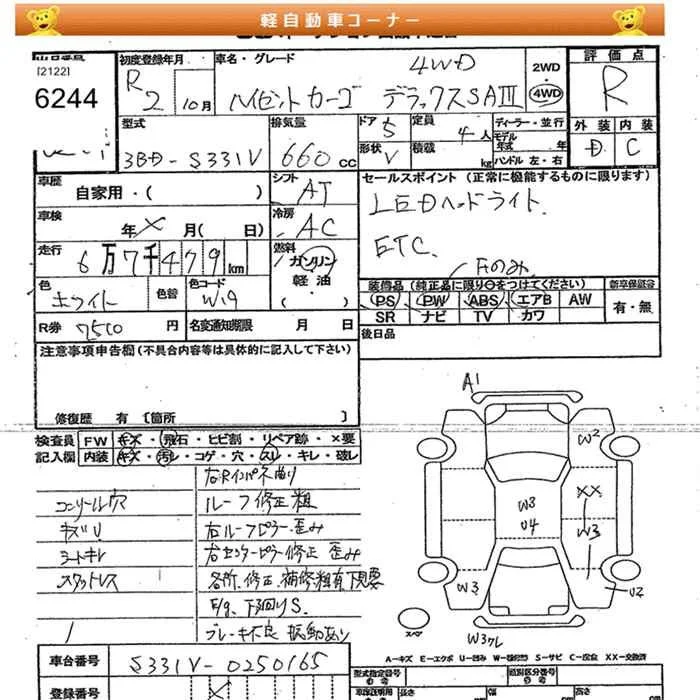 軽自動車コーナー
[2122]
6244
初度登録年月
R2
10月
車名・グレード
4WD
ハイゼットカーゴ デラックスSAⅢ
2WD
4WD
評価点
R
型式
3BD-S331V
排気量
660 cc
ドア
5
形状
V
定員
4人
積載
kg
ディーラー・並行
モデル
年式
年
ハンドル 左・右
外装
内装
D
C
車歴
自家用・( )
シフト
AT
セールスポイント (正常に機能するものに限ります)
LEDヘッドライト.
ETC.
Fのみ.
車検
年 X 月( 日)
冷房
AC
走行
6万7千479km
燃料
ガソリン
軽油
・( )
色
ホワイト
色替
色コード
W19
装備品 (純正品に限り○をつけてください)
新車保証書
PS PW ABS エアB AW
有・無
SR ナビ TV カワ
R券
7510 円
名変通知期限 月 日
後日品
注意事項申告欄 (不具合内容等は具体的に記入して下さい)
修復歴 有 〔箇所 〕
検査員
記入欄
FW キズ・飛石・ヒビ割・リペア跡・×要
内装 キズ・汚レ・コゲ・穴・スレ・キレ・破レ
コンソール穴
ルーフ修正粗
キズU
右ルーフピラー歪み
シートキレ
右センターピラー修正 歪み
スタットレス
各所.修正.補修粗有下見要
F/g.下回りS.
ブレーキ不良 振動あり
A1
W2
XX
W3
W3
U4
W3
U2
W3クレ
スペア
A-キズ E-エクボ U-凹み W-補修跡 S-サビ C-腐食 XX-交換済
車台番号
S331V-0250165
登録番号
型式指定番号
類別区分番号
長さ
幅
高さ